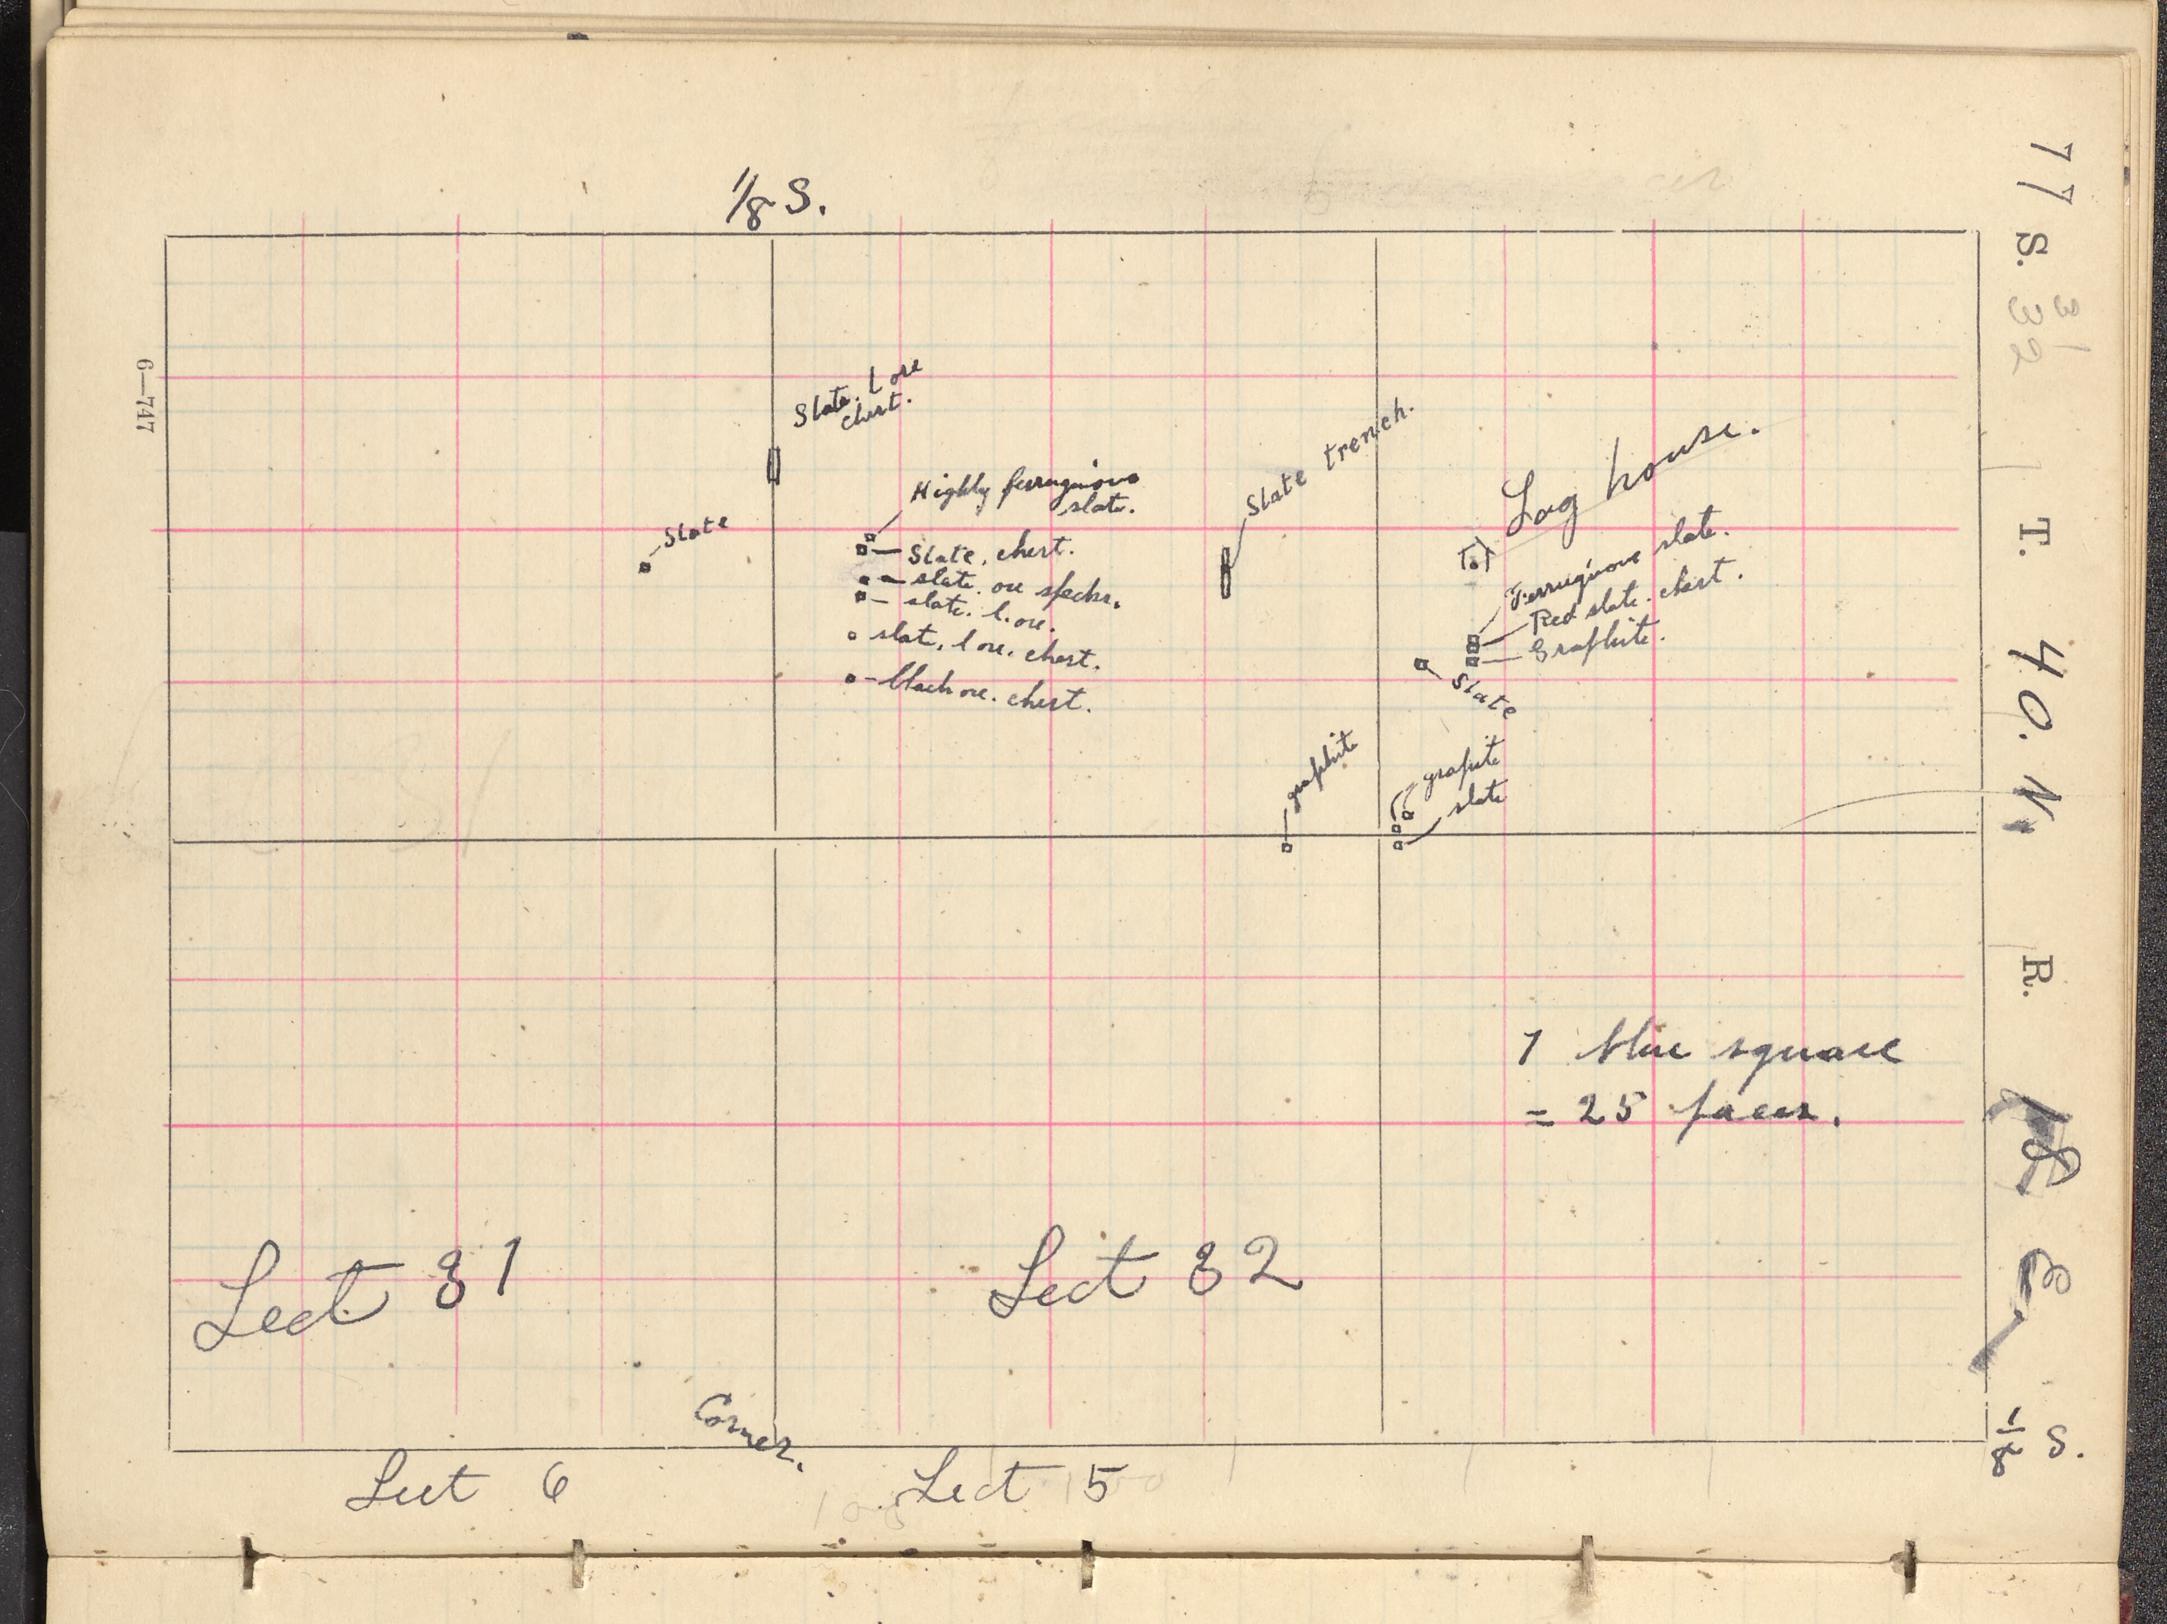 1/8 S.
6—747
Slate. L ore
chert.
Slate
Highly ferruginous
slate.
Slate, chert.
slate. ore specks.
slate. l. ore.
slat. l ore. chert.
black ore. chert.
Slate trench.
Log house.
Ferruginous slate.
Red slate. chert.
Graphite.
Slate
graphite
grafite
slate
1 blue square
= 25 paces.
Sect 31
Sect 32
Corner.
Sect 6
Sect 5
77 S. 31
32
T. 40. N.
R. 18 E.
1/8 S.